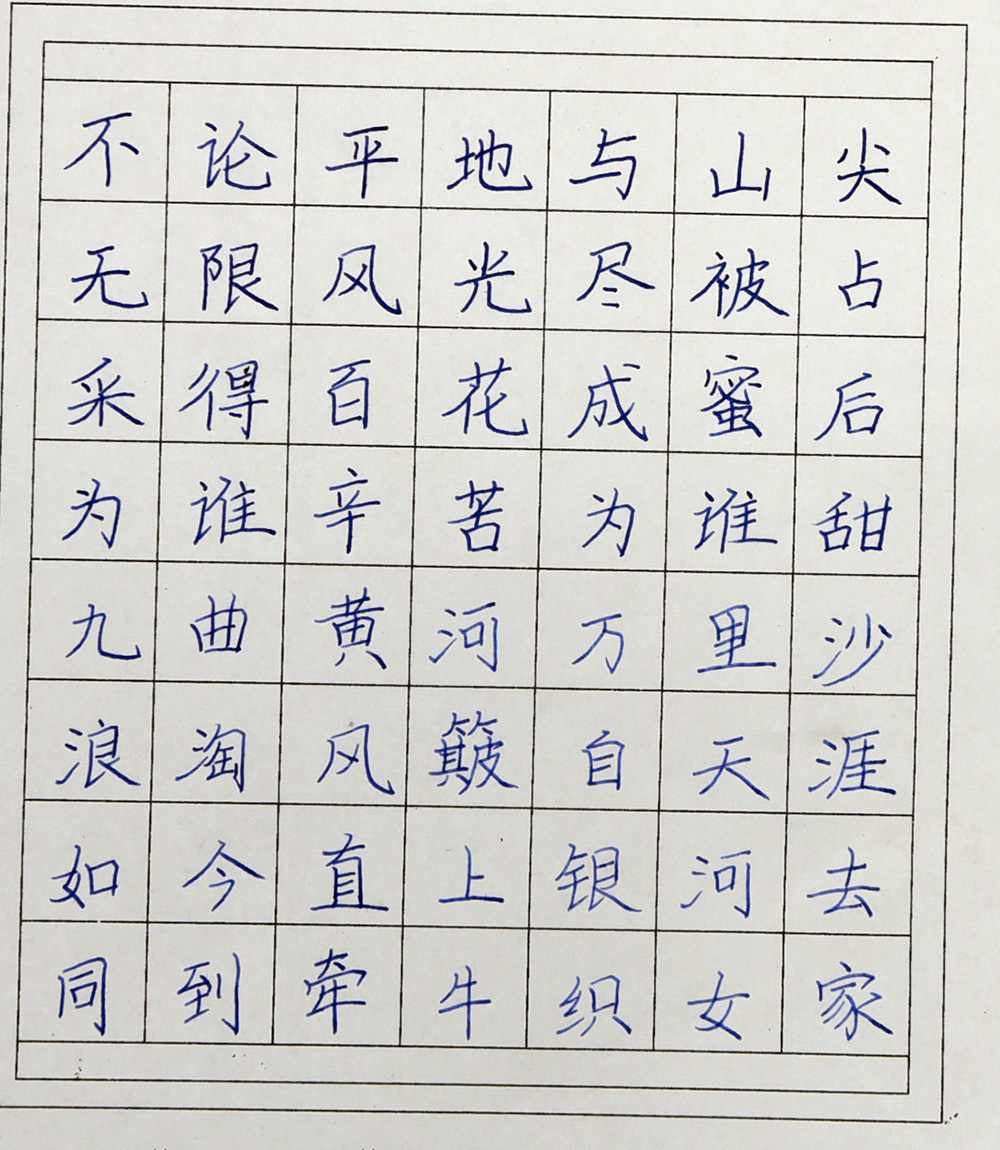 不论平地与山尖
无限风光尽被占
采得百花成蜜后
为谁辛苦为谁甜
九曲黄河万里沙
浪淘风簸自天涯
如今直上银河去
同到牵牛织女家